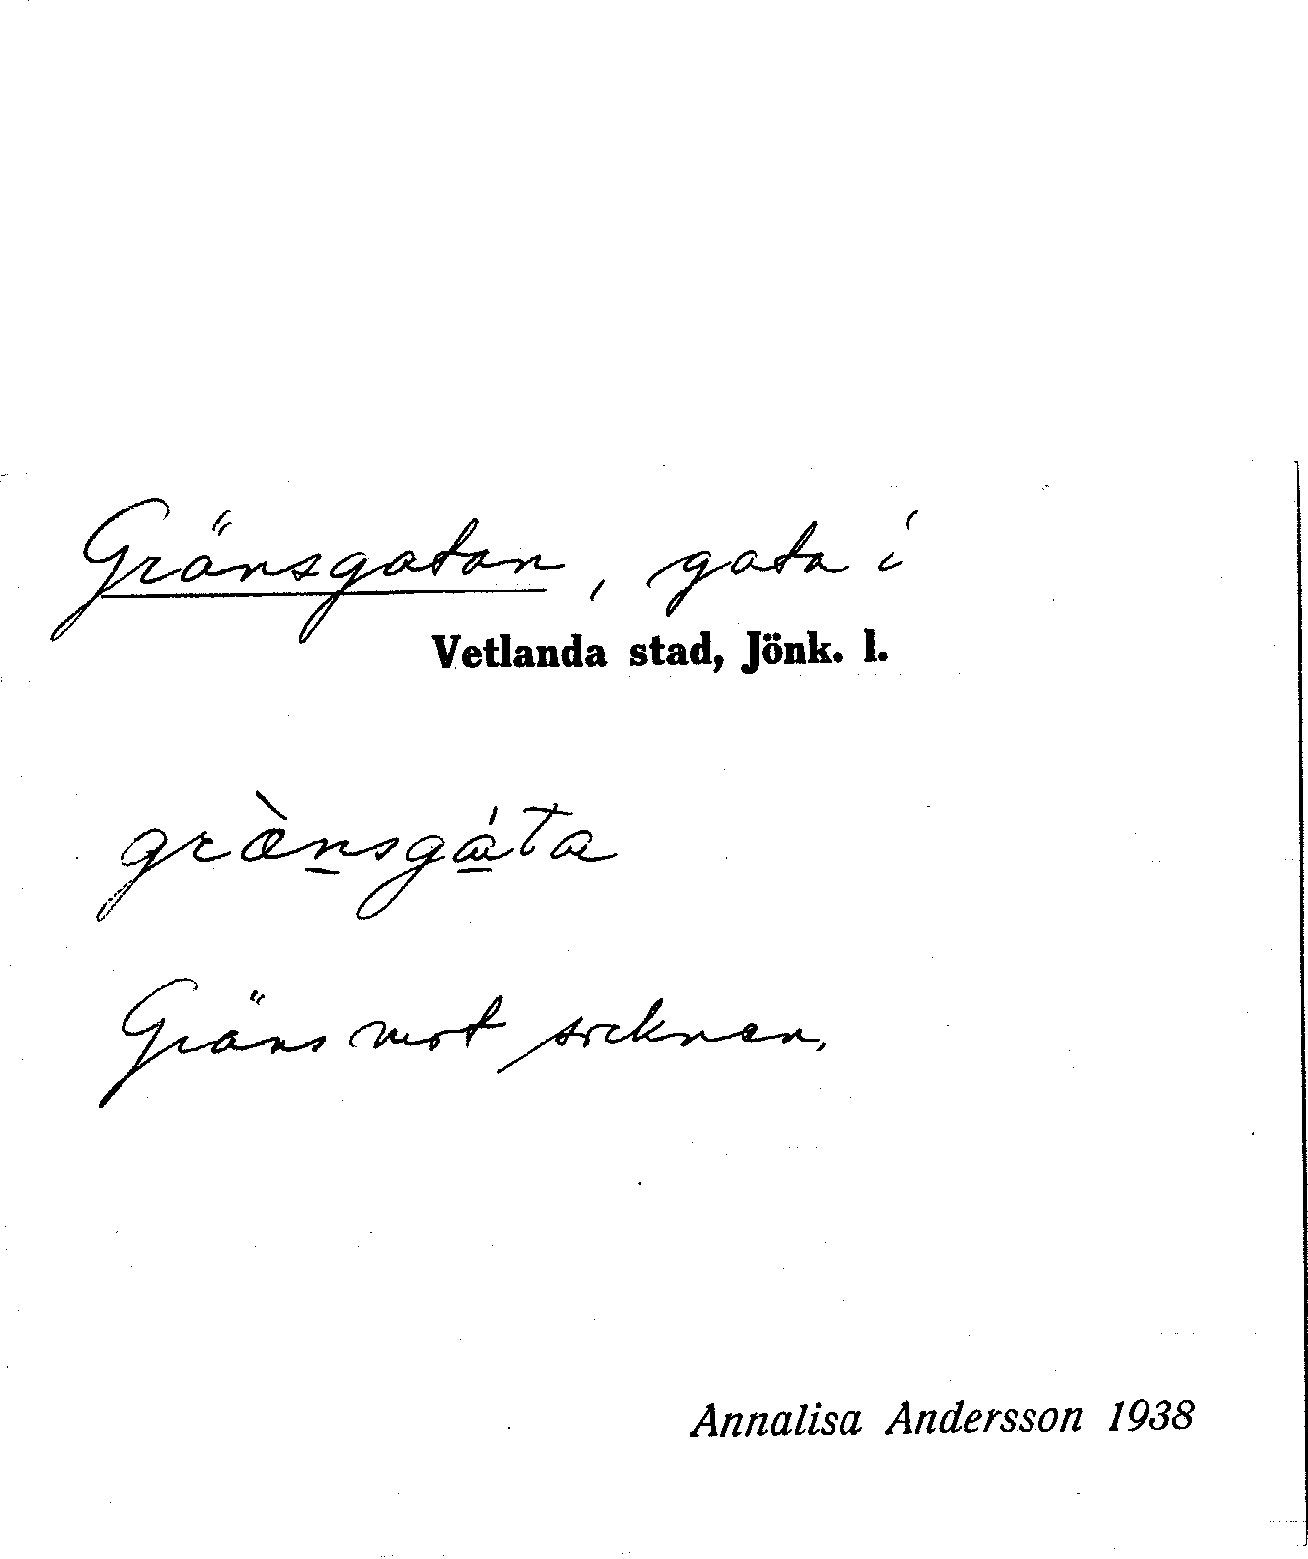 Gränsgatan, gata i
Vetlanda stad, Jönk. l.
græ̀n̲sgá̲ta
Gräns mot socknen.
Annalisa Andersson 1938